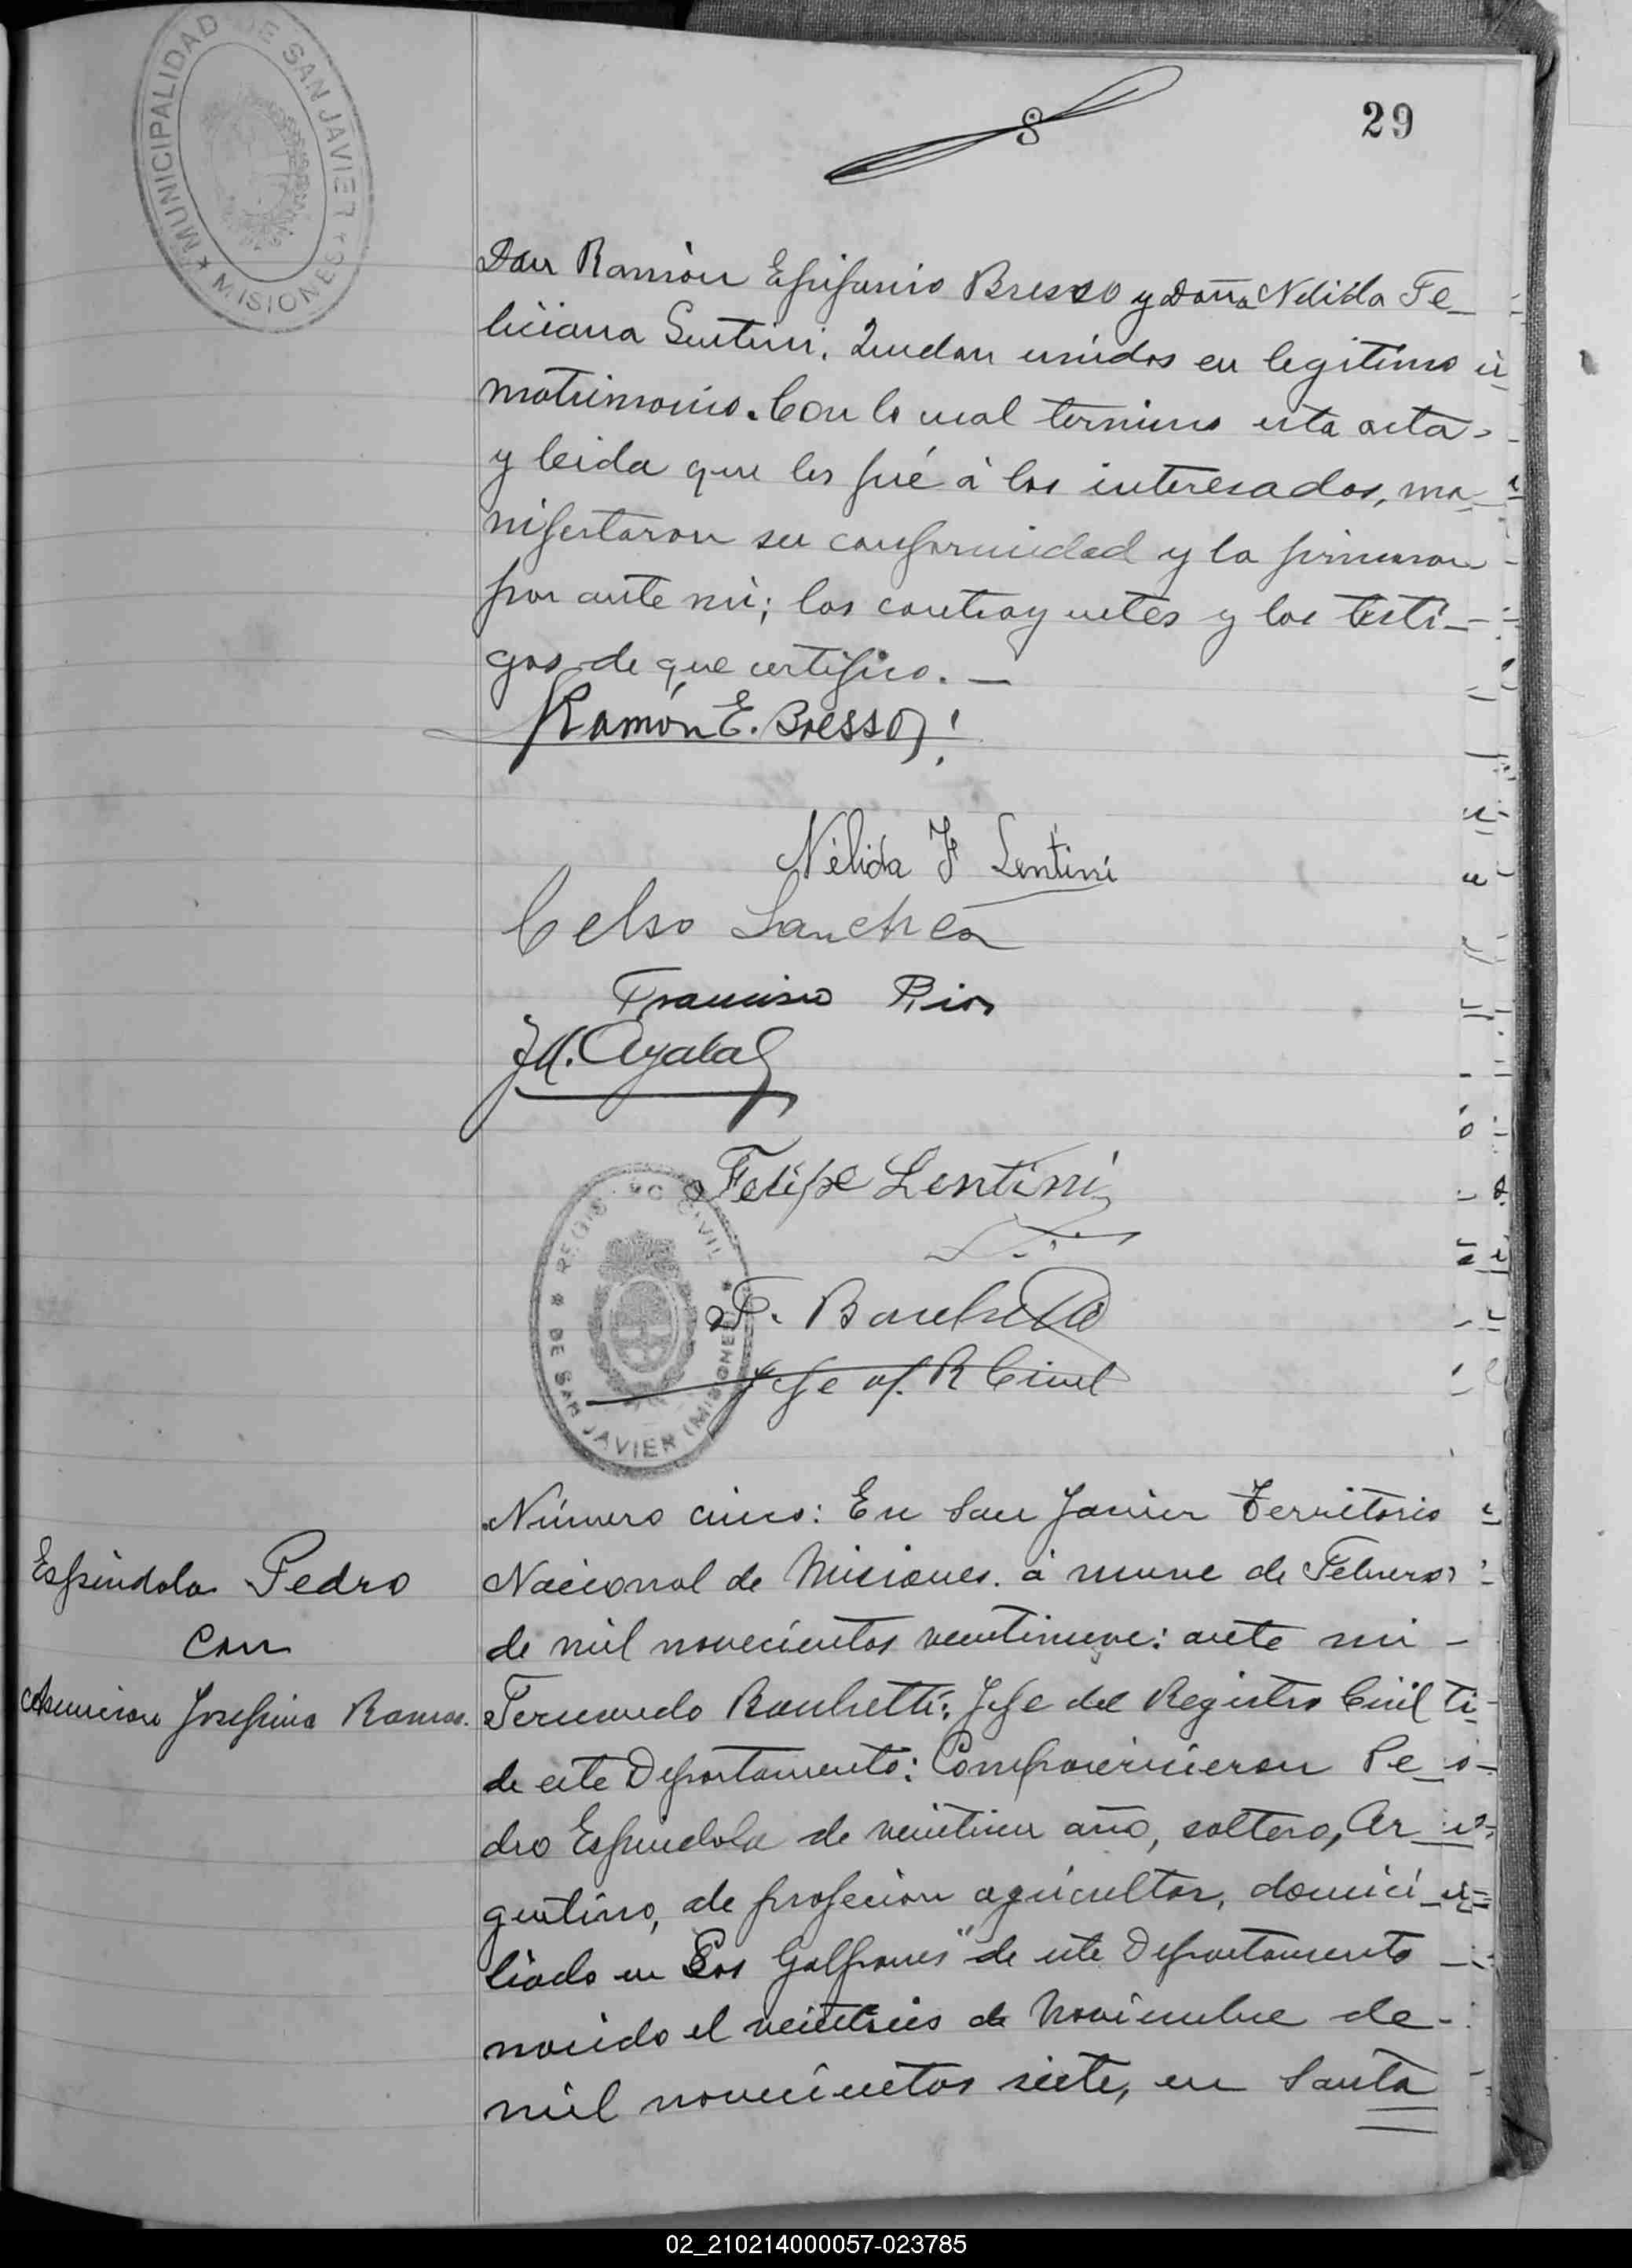 MUNICIPALIDAD DE SAN JAVIER
★ MISIONES ★
29
Don Ramón Epifanio Bresso y Doña Nelida Fe_
liciana Lentini. Quedan unidos en legitimo
matrimonio. Con lo cual termino esta acta
y leida que les fué á los interesados, ma_
nifestaron su conformidad y la firmaron
por ante mi; los contrayentes y los testi_
gos de que certifico. _
Ramón E. Bresso
Nélida F Lentini
Celso Sanchez
Francisco Rios
Ayala
Felipe Lentini
REGISTRO CIVIL
* DE SAN JAVIER (MISIONES) *
F. Banchetti
Jefe of. R Civil
Espindola Pedro
Con
Asuncion Josefina Ramos.
Número cinco: En San Javier Territorio
Nacional de Misiones. á nueve de Febrero
de mil novecientos veintinueve: ante mi -
Fernando Banchetti; Jefe del Registro Civil
de este Departamento: Comparecieron Pe_
dro Espindola de veintiun año, soltero, Ar_
gentino, de profecion agricultor, domici_
liado en Los Galpones" de este Departamento
nacido el veintiseis de Noviembre de
mil novecientos siete, en Santa
02_210214000057-023785